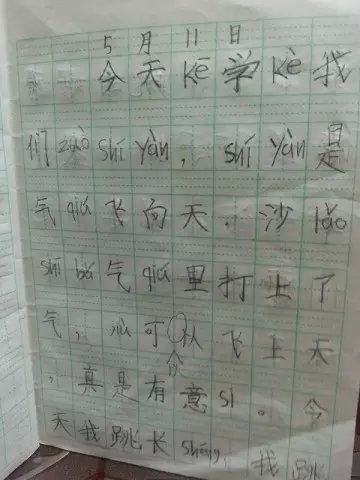 5月11日
今天kē学kè我
们zuò shí yàn，shí yàn是
气qiú飞向天，沙lǎo
shī bǎ气qiú里打上了
气，jiù可以飞上天
，真是有意si。今
天我跳长shéng，我跳